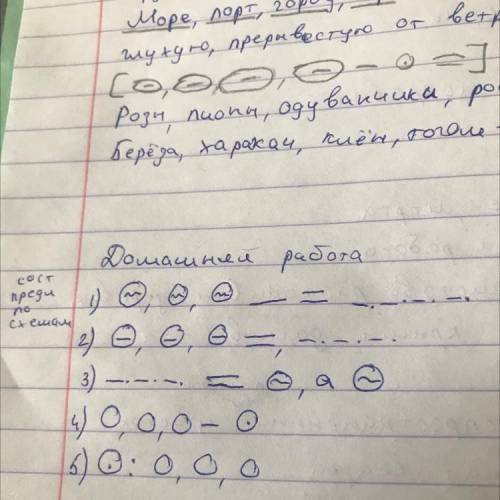 Море, порт, город,
глухую, прерывестую от ветр
Розы, пионы, одуванчики, ро
Берёза, каракач, клён, тополь
Домашняя работа
сост
предл
по
схемам
1)
2)
3) , а
4) О, О, О – О
5) О : О, О, О